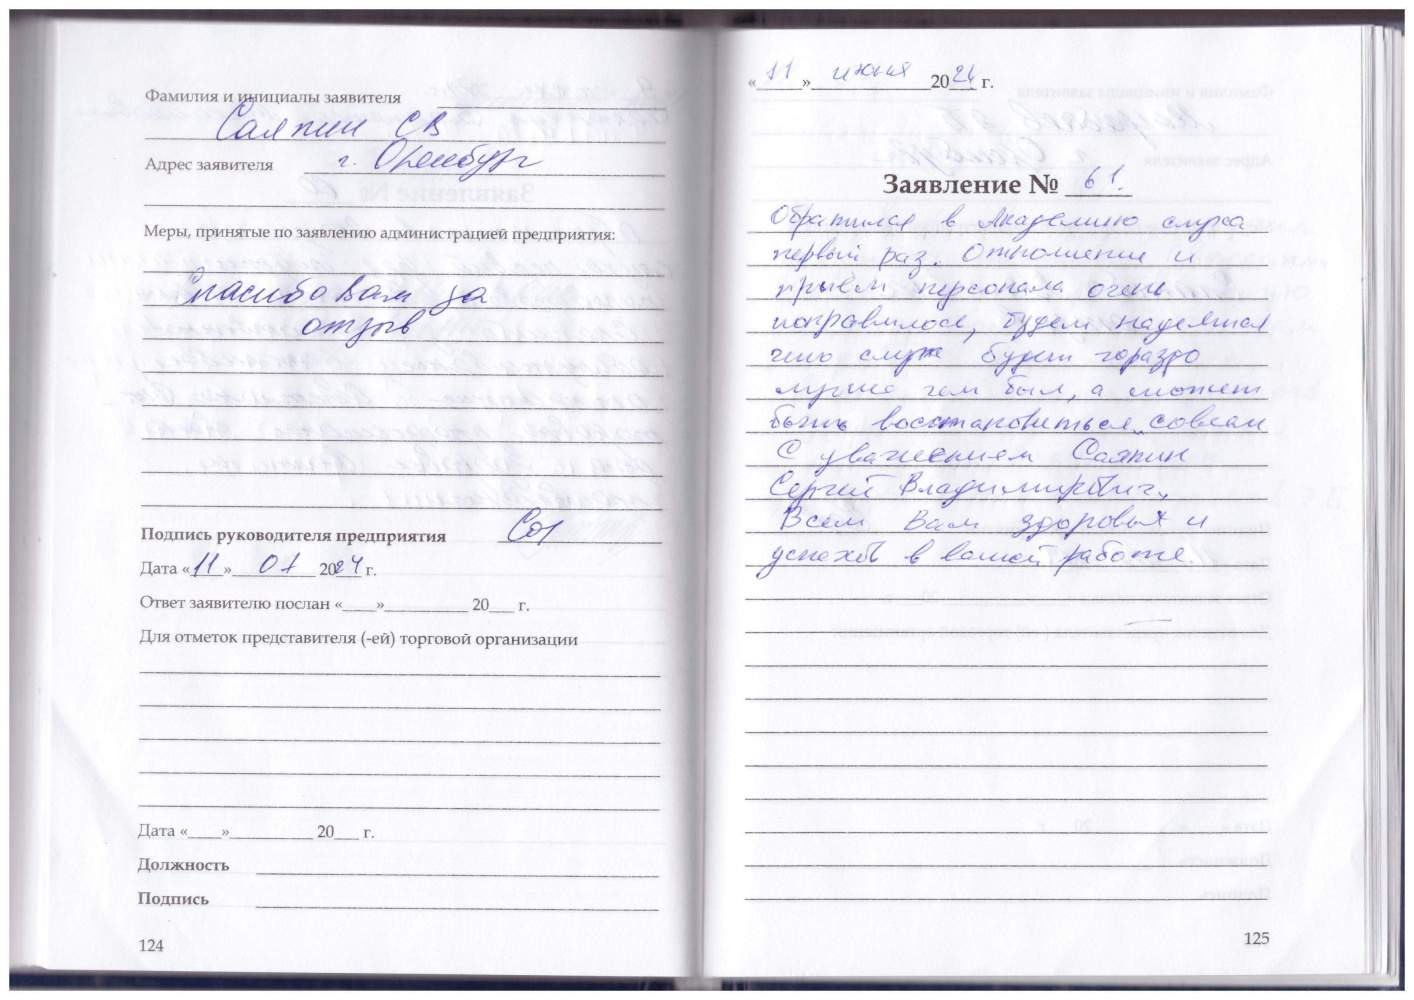 Фамилия и инициалы заявителя
Саяпин СВ
Адрес заявителя г. Оренбург
Меры, принятые по заявлению администрацией предприятия:
Спасибо Вам за
отзыв
Подпись руководителя предприятия
Дата «11» 07 2024 г.
Ответ заявителю послан «____»__________ 20___ г.
Для отметок представителя (-ей) торговой организации
Дата «____»__________ 20___ г.
Должность
Подпись
124
«11» июня 2024 г.
Заявление № 61.
Обратился в Академию слуха
первый раз. Отношение и
приём персонала очень
понравилось, будем надеятся
что слух будет горазро
лучше чем был, а может
быть восстановиться совсем
С уважением Саяпин
Сергей Владимирович.
Всем Вам здоровья и
успехов в вашей работе.
125